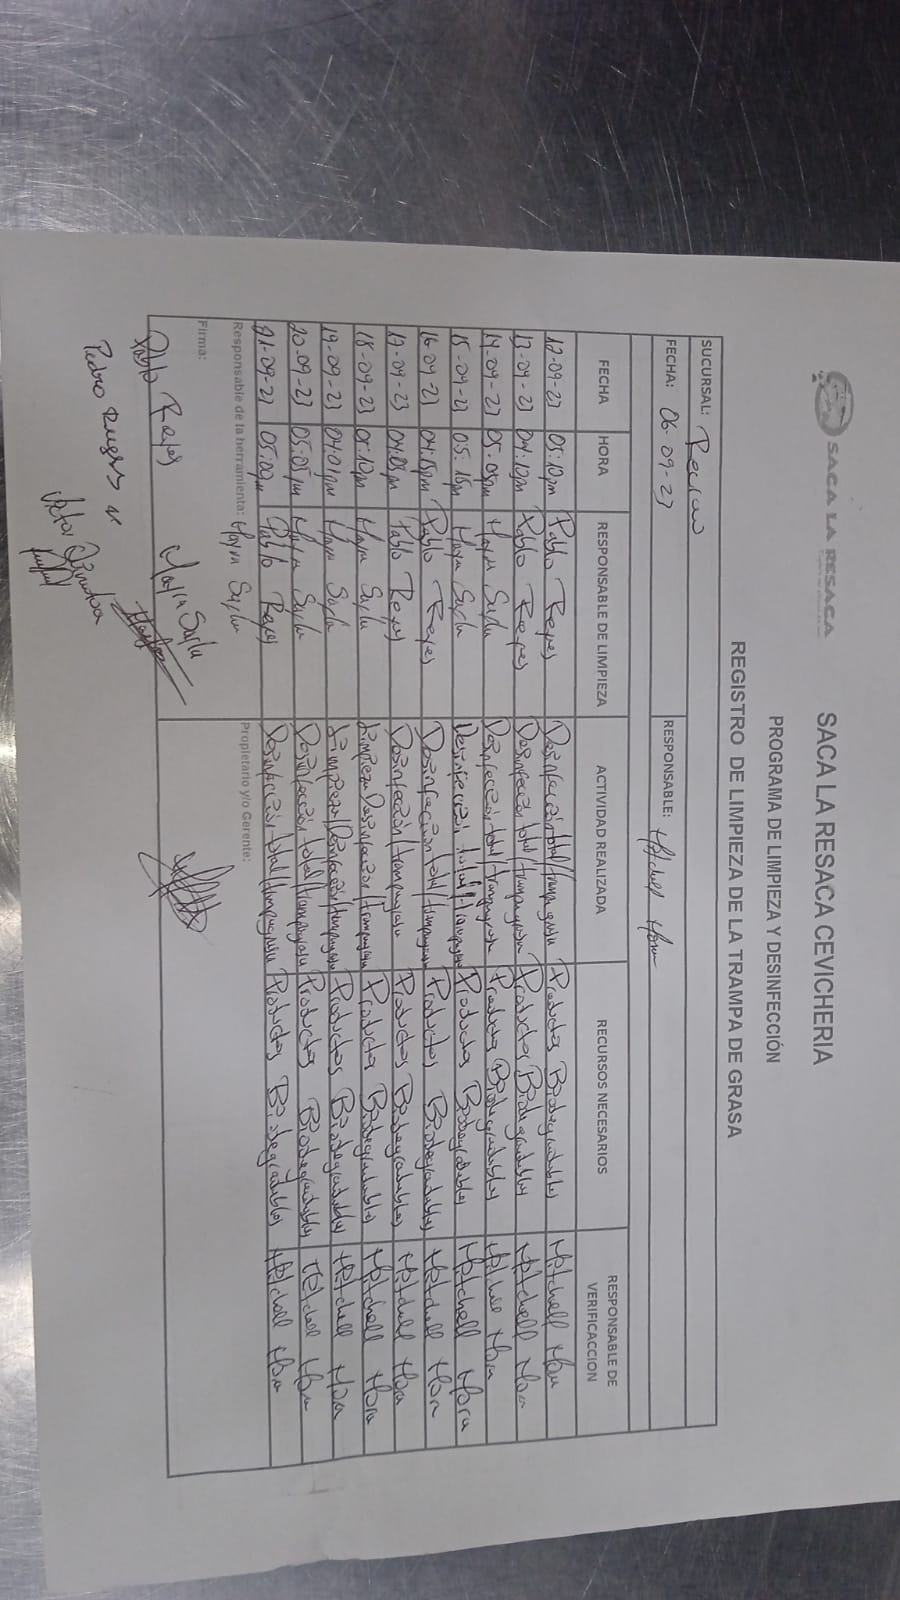 SACA LA RESACA
SACA LA RESACA CEVICHERIA
PROGRAMA DE LIMPIEZA Y DESINFECCIÓN
REGISTRO DE LIMPIEZA DE LA TRAMPA DE GRASA
SUCURSAL:
FECHA: 06-09-23 RESPONSABLE: Mitchell Mora
FECHA HORA RESPONSABLE DE LIMPIEZA ACTIVIDAD REALIZADA RECURSOS NECESARIOS RESPONSABLE DE VERIFICACCION
12-09-23 05:10pm Pablo Reyes Desinfección total/trampa grasa Productos Biodegradables Mitchell Mora
13-09-23 04:10pm Pablo Reyes Desinfección total/trampa grasa Productos Biodegradables Mitchell Mora
14-09-23 05:05pm Mayra Desinfección total/trampa grasa Productos Biodegradables Mitchell Mora
15-09-23 05:15pm Mayra Desinfección total/trampa grasa Productos Biodegradables Mitchell Mora
16-09-23 04:15pm Pablo Reyes Desinfección total/trampa grasa Productos Biodegradables Mitchell Mora
17-09-23 04:05pm Pablo Reyes Desinfección/trampa grasa Productos Biodegradables Mitchell Mora
18-09-23 05:10pm Mayra Limpieza Desinfección/trampa grasa Productos Biodegradables Mitchell Mora
19-09-23 04:01pm Mayra Limpieza/Desinfección/trampa grasa Productos Biodegradables Mitchell Mora
20-09-23 05:05pm Mayra Desinfección total/trampa grasa Productos Biodegradables Mitchell Mora
21-09-23 05:00pm Pablo Reyes Desinfección total/trampa grasa Productos Biodegradables Mitchell Mora
Responsable de la herramienta: Mayra Propietario y/o Gerente:
Firma:
Pablo Reyes Mayra
Pedro